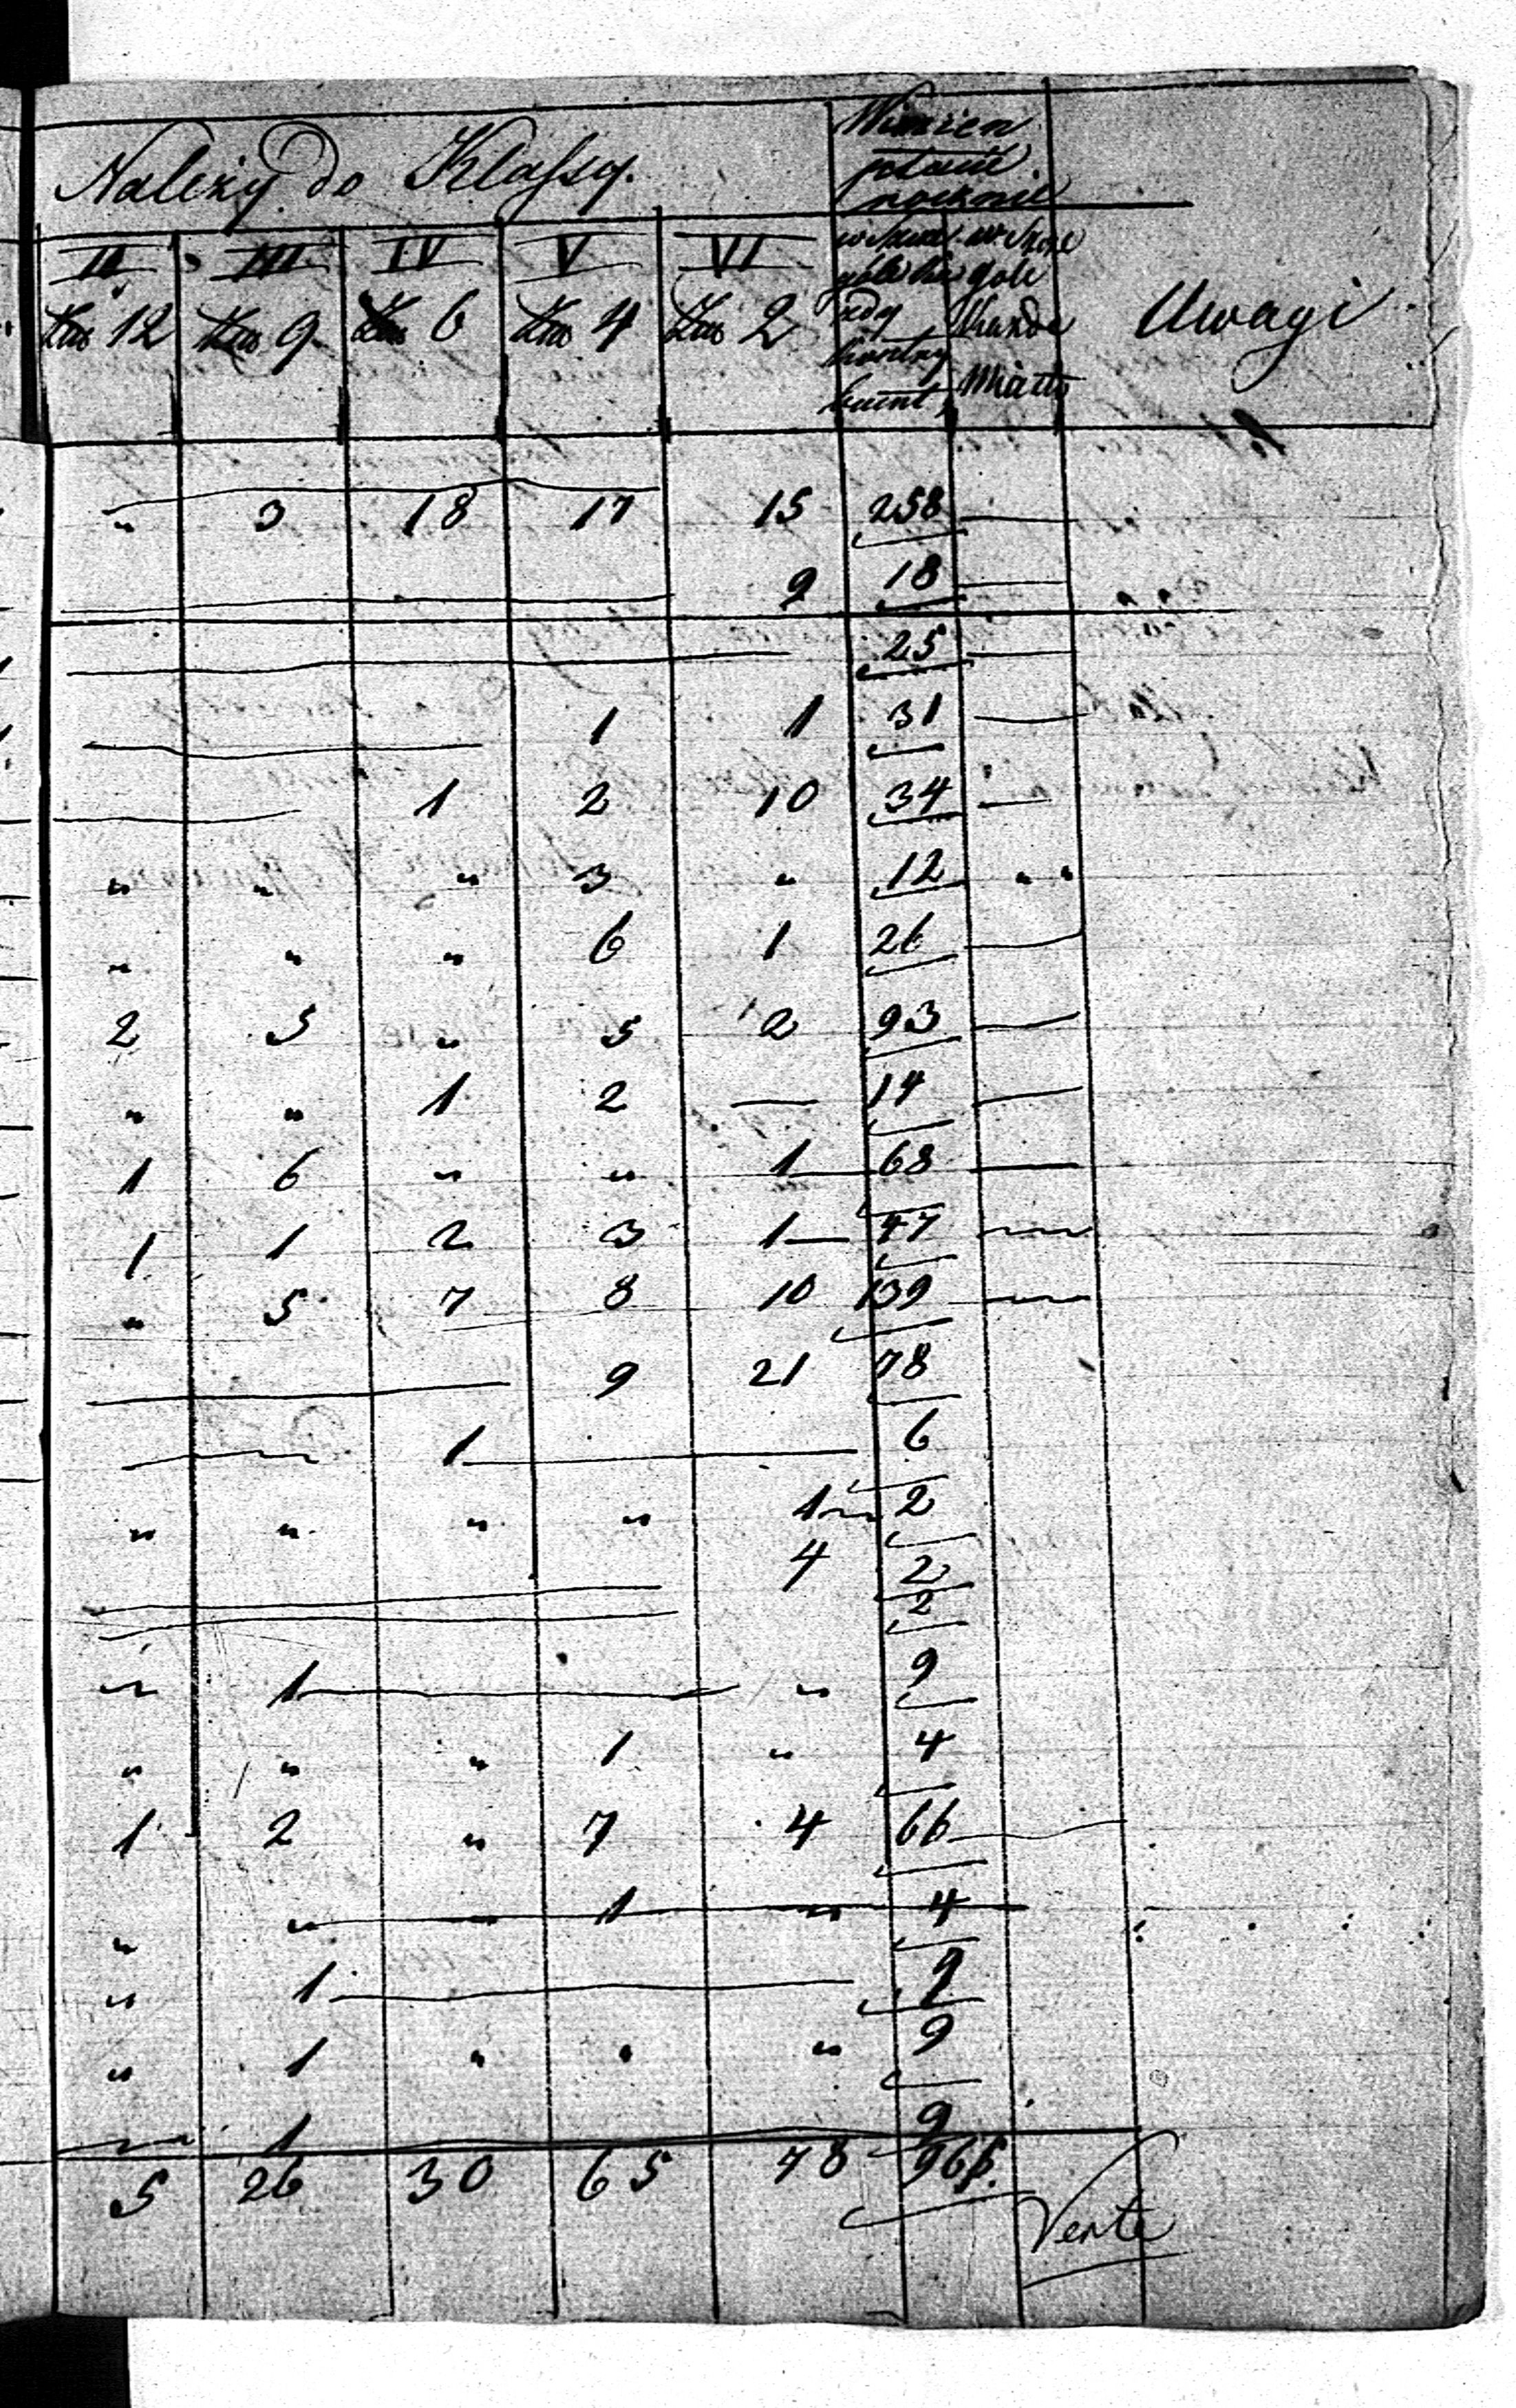 Należy do Klassy.
Winien płacić rocznie
II III IV V VI
Uwagi
12 9 6 4 2
każde
Miasto
" 3 18 17 15 258
9 18
25
1 1 31
1 2 10 34
" " " 3 " 12 " "
" " " 6 1 26
2 5 " 5 2 93
" " 1 2 — 14
1 6 " " 1 68
1 1 2 3 1 47
" 5 7 8 10 139
9 21 78
1 6
" " " " 1 2
4 2
2
" 1 " 9
" " " 1 " 4
1 2 " 7 4 66
" " " 1 " 4
" 1 9
" 1 " " " 9
" 1 9
5 26 30 65 78 965.
Verte